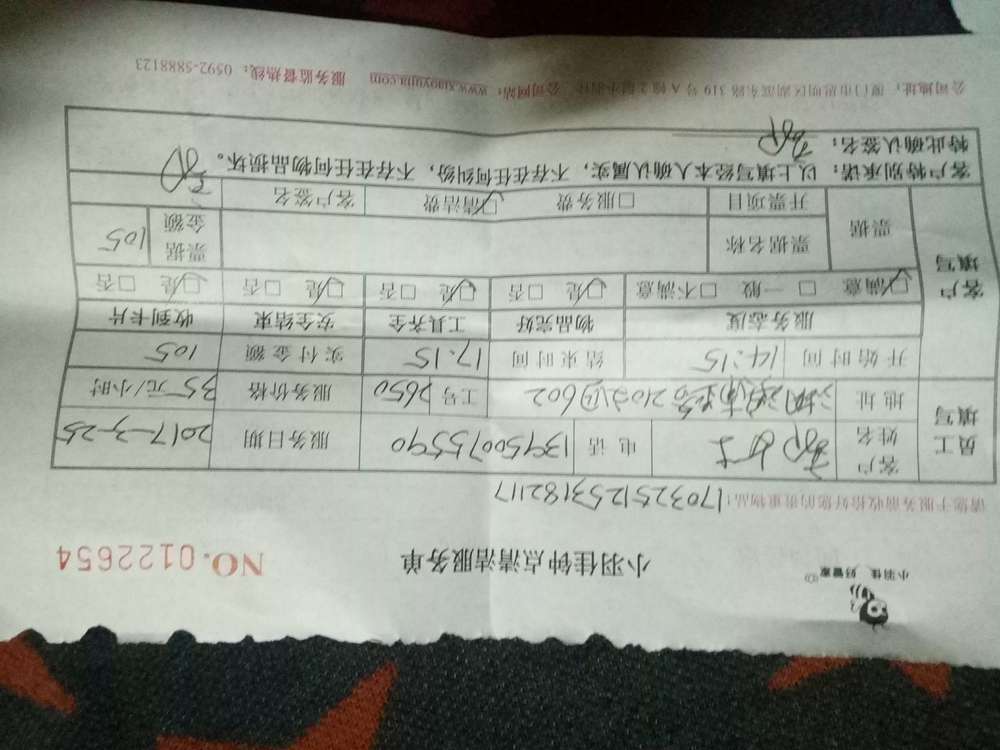 小羽佳 好管家
小羽佳钟点清洁服务单 NO.0122654
请您于服务前收拾好您的贵重物品！1703251253182117
员工填写 客户姓名 女士 电话 13950075590 服务日期 2017-3-25
地址 602 工号 2650 服务价格 35元/小时
开始时间 14:15 结束时间 17:15 实付金额 105
客户填写 服务态度 物品完好 工具齐全 安全结束 收到卡片
☑满意 □一般 □不满意 ☑是 □否 ☑是 □否 ☑是 □否 ☑是 □否
票据 票据名称 票据金额 105
开票项目 □服务费 ☑清洁费 客户签名
客户特别承诺：以上填写经本人确认属实，不存在任何纠纷，不存在任何物品损坏。
特此确认签名：
公司地址：厦门市思明区湖滨东路319号A幢2层 公司网站：www.xiaoyujia.com 服务监督热线：0592-5888123